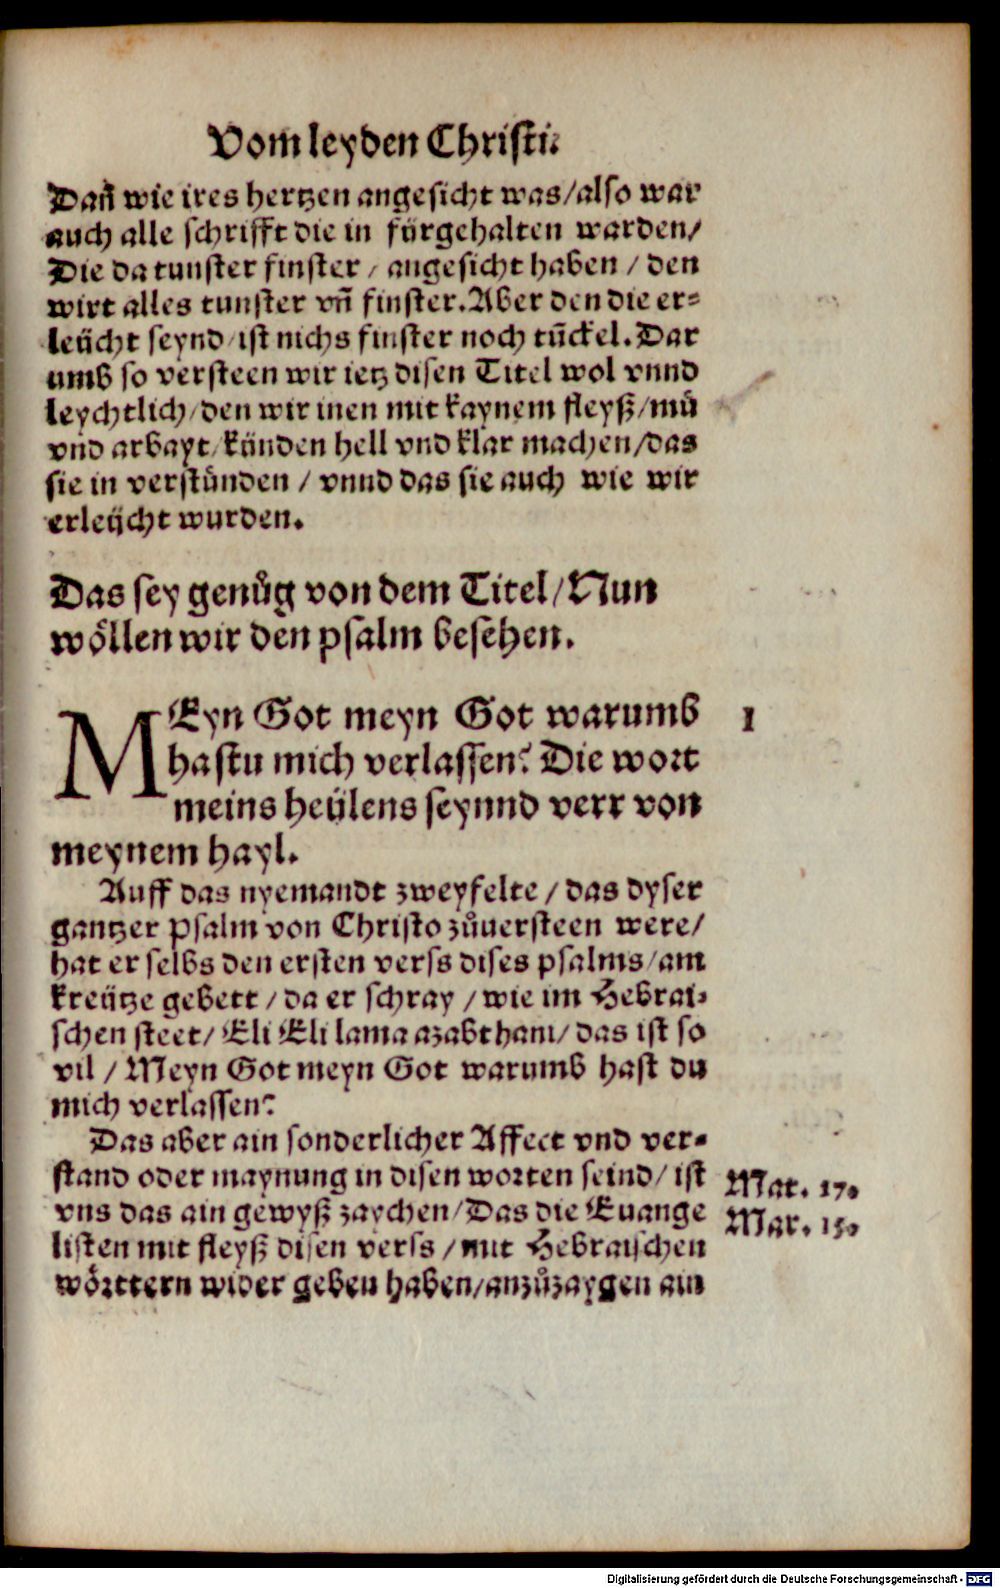 Vom leyden Christi.
Dañ wie ires hertzen angesicht was/also war
auch alle schrifft die in fürgehalten warden/
Die da tunster finster / angesicht haben / den
wirt alles tunster vñ finster. Aber den die er-
leücht seynd/ist nichs finster noch tũckel. Dar
umb so versteen wir ietz disen Titel wol vnnd
leychtlich/den wir inen mit kaynem fleyß/mü
vnd arbayt/künden hell vnd klar machen/das
sie in verstünden / vnnd das sie auch wie wir
erleücht wurden.
Das sey genůg von dem Titel/Nun
wöllen wir den psalm besehen.
MEyn Got meyn Got warumb 1
hastu mich verlassen? Die wort
meins heülens seynnd verr von
meynem hayl.
Auff das nyemandt zweyfelte / das dyser
gantzer psalm von Christo zůuersteen were/
hat er selbs den ersten verss dises psalms/am
kreütze gebett / da er schray / wie im Hebrai-
schen steet/ Eli Eli lama azabthani/ das ist so
vil / Meyn Got meyn Got warumb hast du
mich verlassen?
Das aber ain sonderlicher Affect vnd ver-
stand oder maynung in disen worten seind/ ist
vns das ain gewyß zaychen/Das die Euange
listen mit fleyß disen verss / mit Hebraischen
wörttern wider geben haben/anzůzaygen ain
Mat. 27.
Mar. 15.
Digitalisierung gefördert durch die Deutsche Forschungsgemeinschaft - DFG